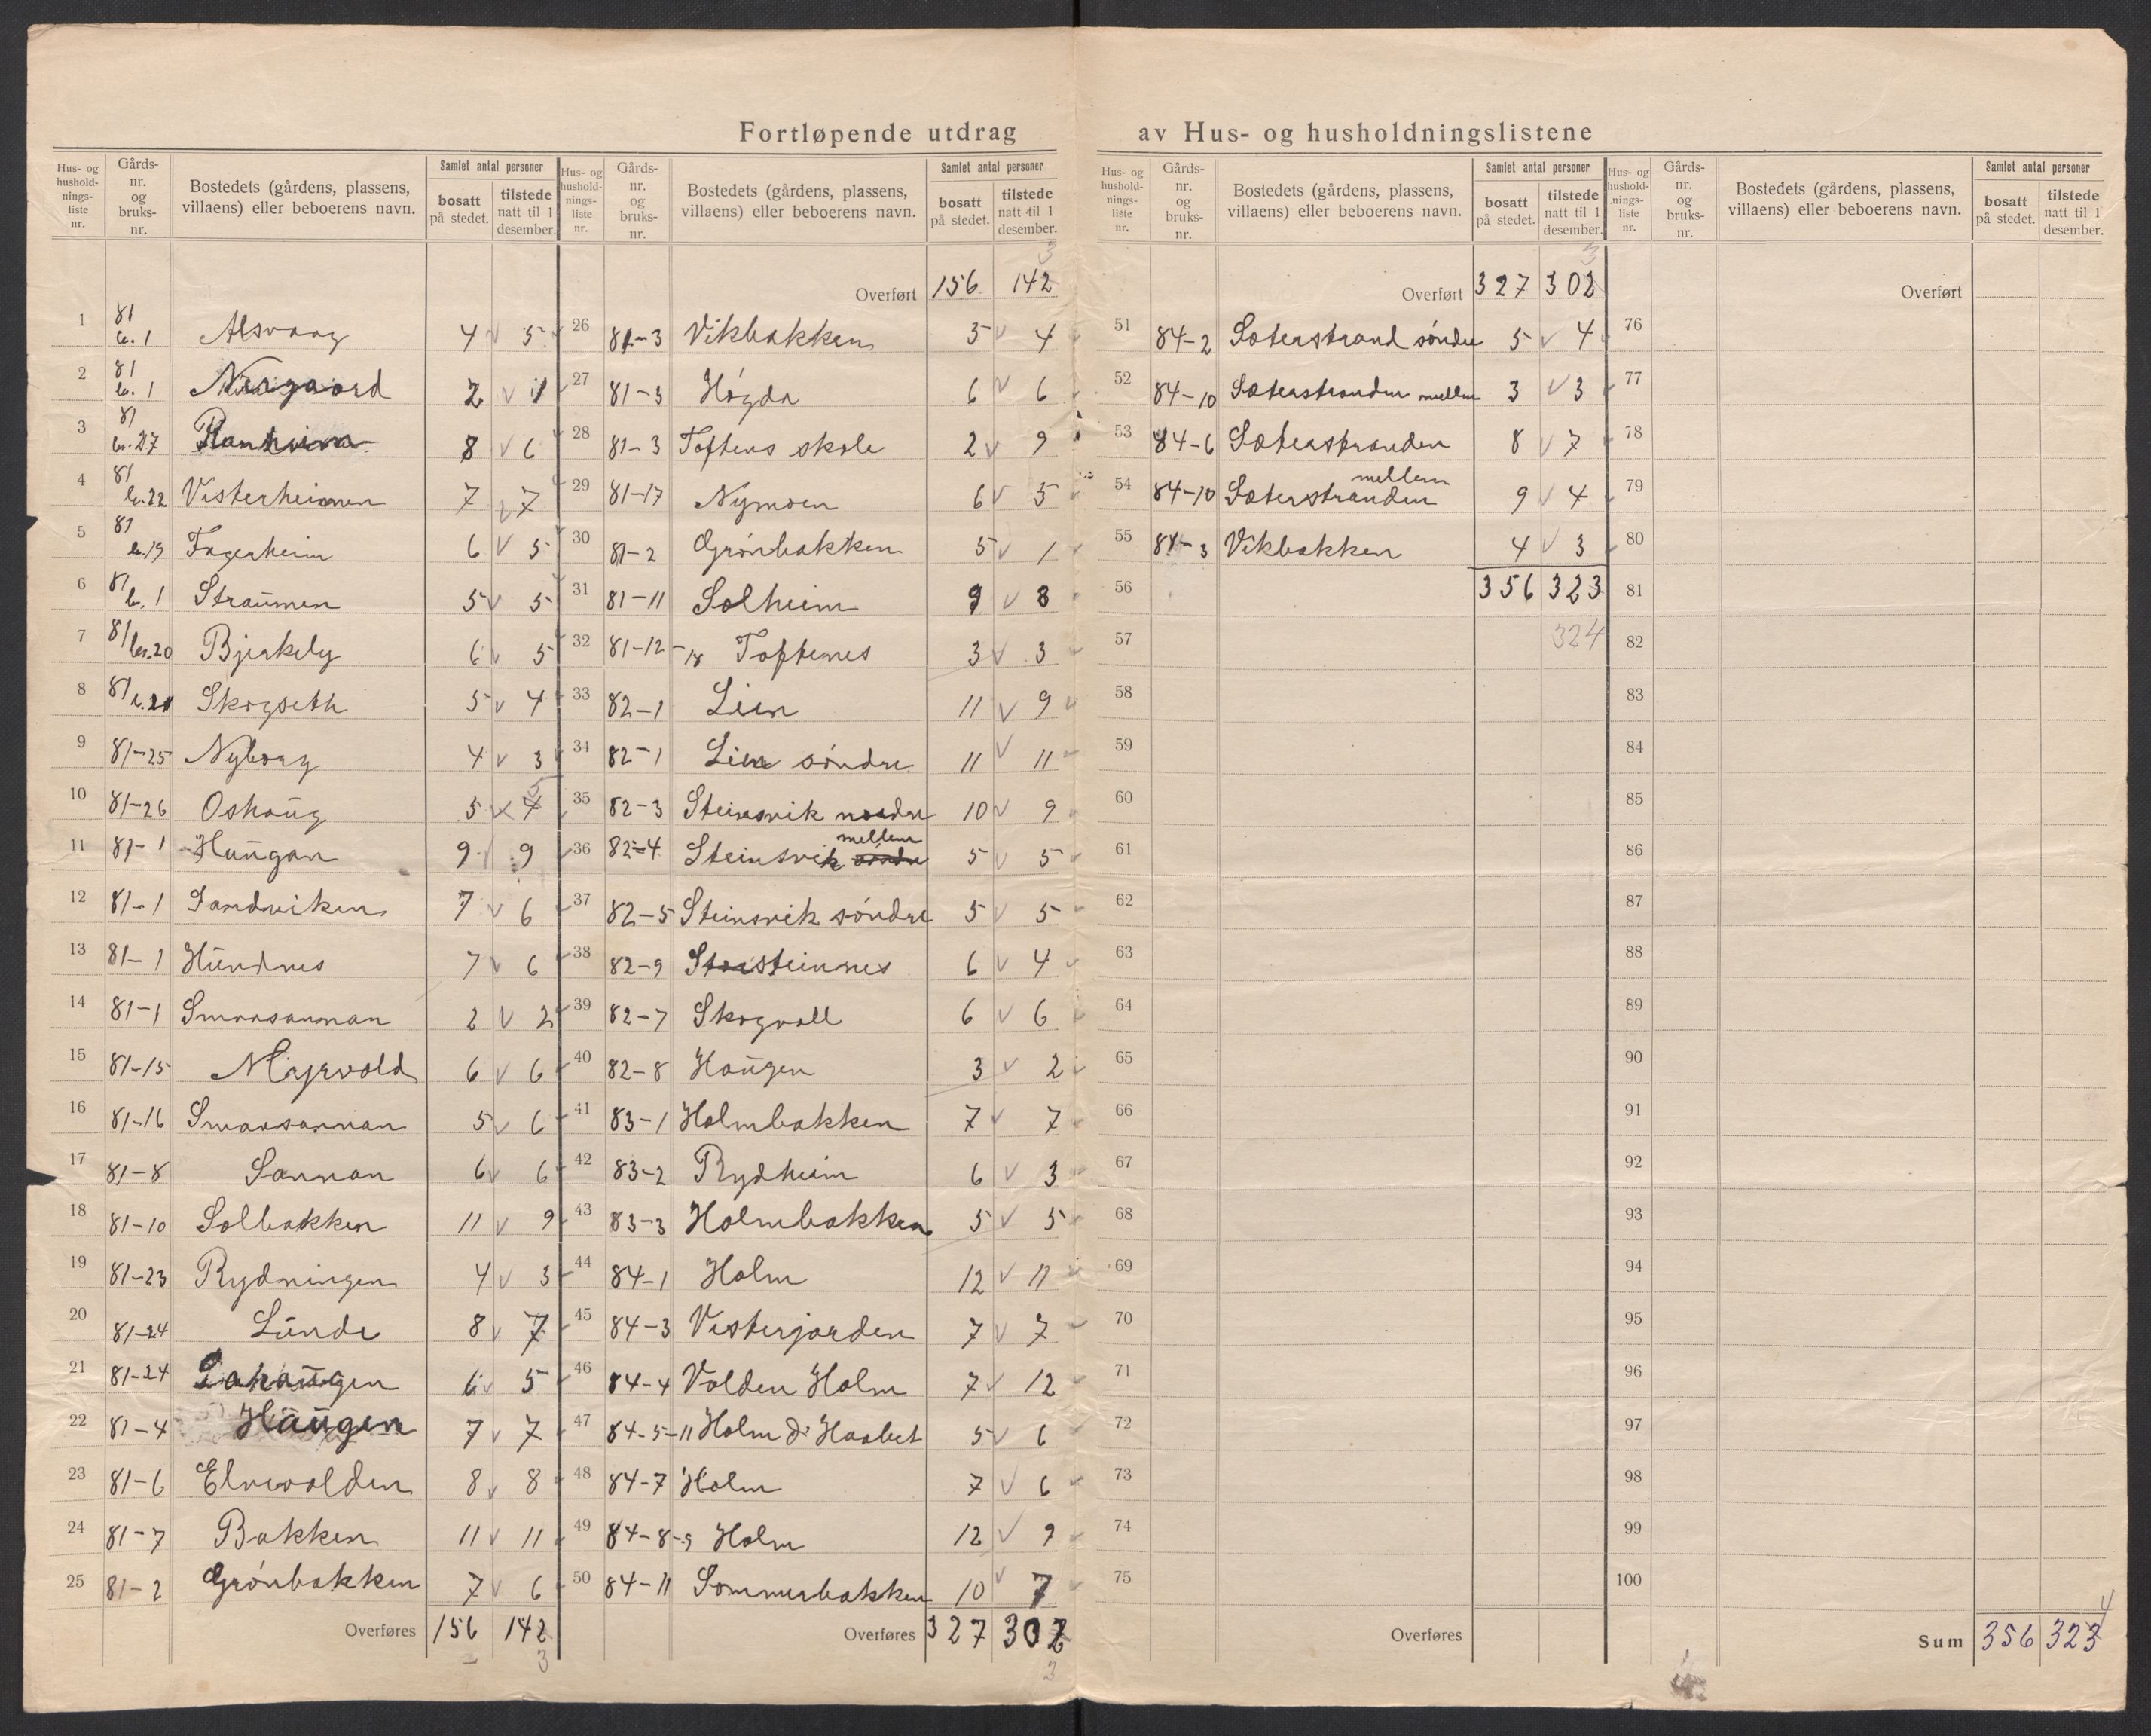 Fortløpende utdrag av Hus- og husholdningslistene
Hus- og hushold-nings-liste nr. Gårds-nr. og bruks-nr. Bostedets (gårdens, plassens, villaens) eller beboerens navn. Samlet antal personer bosatt på stedet. tilstede natt til 1 desember.
Hus- og hushold-nings-liste nr. Gårds-nr. og bruks-nr. Bostedets (gårdens, plassens, villaens) eller beboerens navn. Samlet antal personer bosatt på stedet. tilstede natt til 1 desember.
Hus- og hushold-nings-liste nr. Gårds-nr. og bruks-nr. Bostedets (gårdens, plassens, villaens) eller beboerens navn. Samlet antal personer bosatt på stedet. tilstede natt til 1 desember.
Hus- og hushold-nings-liste nr. Gårds-nr. og bruks-nr. Bostedets (gårdens, plassens, villaens) eller beboerens navn. Samlet antal personer bosatt på stedet. tilstede natt til 1 desember.
1 81 b. 1 Alsvaag 4 v 5
2 81 b. 1 Nergaard 2 v 1
3 81 b. 27 8 v 6
4 81 b. 22 Vesterheimen 7 v 7
5 81 b. 19 Fagerheim 6 v 5
6 81 b. 1 Straumen 5 v 5
7 81 b. 20 Bjerkely 6 v 5
8 81 b. 21 Skogseth 5 v 4
9 81-25 Nyborg 4 v 3
10 81-26 Oshaug 5 x 4 5
11 81-1 Haugan 9 9
12 81-1 Sandviken 7 v 6
13 81-1 Hundnes 7 v 6
14 81-1 Smaasannan 2 v 2
15 81-15 Myrvold 6 v 6
16 81-16 Smaasannan 5 v 6
17 81-8 Sannan 6 v 6
18 81-10 Solbakken 11 v 9
19 81-23 Rydningen 4 v 3
20 81-24 Lunde 8 v 7
21 81-24 6 v 5
22 81-4 Haugen 7 v 7
23 81-6 Elvevolden 8 v 8
24 81-7 Bakken 11 v 11
25 81-2 Grønbakken 7 v 6
Overføres 156 142
3
3
Overført 156 142
26 81-3 Vikbakken 5 v 4
27 81-3 Høgda 6 v 6
28 81-3 Toftens skole 2 v 9
29 81-17 Nymoen 6 v 5
30 81-2 Grønbakken 5 v 1
31 81-11 Solheim 9 v 8
32 81-12-18 Toftenes 3 v 3
33 82-1 Lien 11 v 9
34 82-1 Lien søndre 11 v 11
35 82-3 Steinsvik nordre 10 v 9
36 82-4 Steinsvik søndre mellem 5 v 5
37 82-5 Steinsvik søndre 5 v 5
38 82-9 Storsteinnes 6 v 4
39 82-7 Skogvoll 6 v 6
40 82-8 Haugen 3 v 2
41 83-1 Holmbakken 7 v 7
42 83-2 Rydheim 6 v 3
43 83-3 Holmbakken 5 v 5
44 84-1 Holm 12 v 11
45 84-3 Vesterjorden 7 v 7
46 84-4 Volden Holm 7 v 12
47 84-5-11 Holm & Haabet 5 v 6
48 84-7 Holm 7 v 6
49 84-8-9 Holm 12 v 9
50 84-11 Sommerbakken 10 v 7
Overføres 327 302
3
3
Overført 327 302
51 84-2 Sæterstrand søndre 5 v 4
52 84-10 Sæterstranden mellem 3 v 3
53 84-6 Sæterstranden 8 v 7
54 84-10 Sæterstranden mellem 9 v 4
55 81-3 Vikbakken 4 v 3
56 356 323
57 324
58
59
60
61
62
63
64
65
66
67
68
69
70
71
72
73
74
75
Overføres
Overført
76
77
78
79
80
81
82
83
84
85
86
87
88
89
90
91
92
93
94
95
96
97
98
99
100
4
Sum 356 323